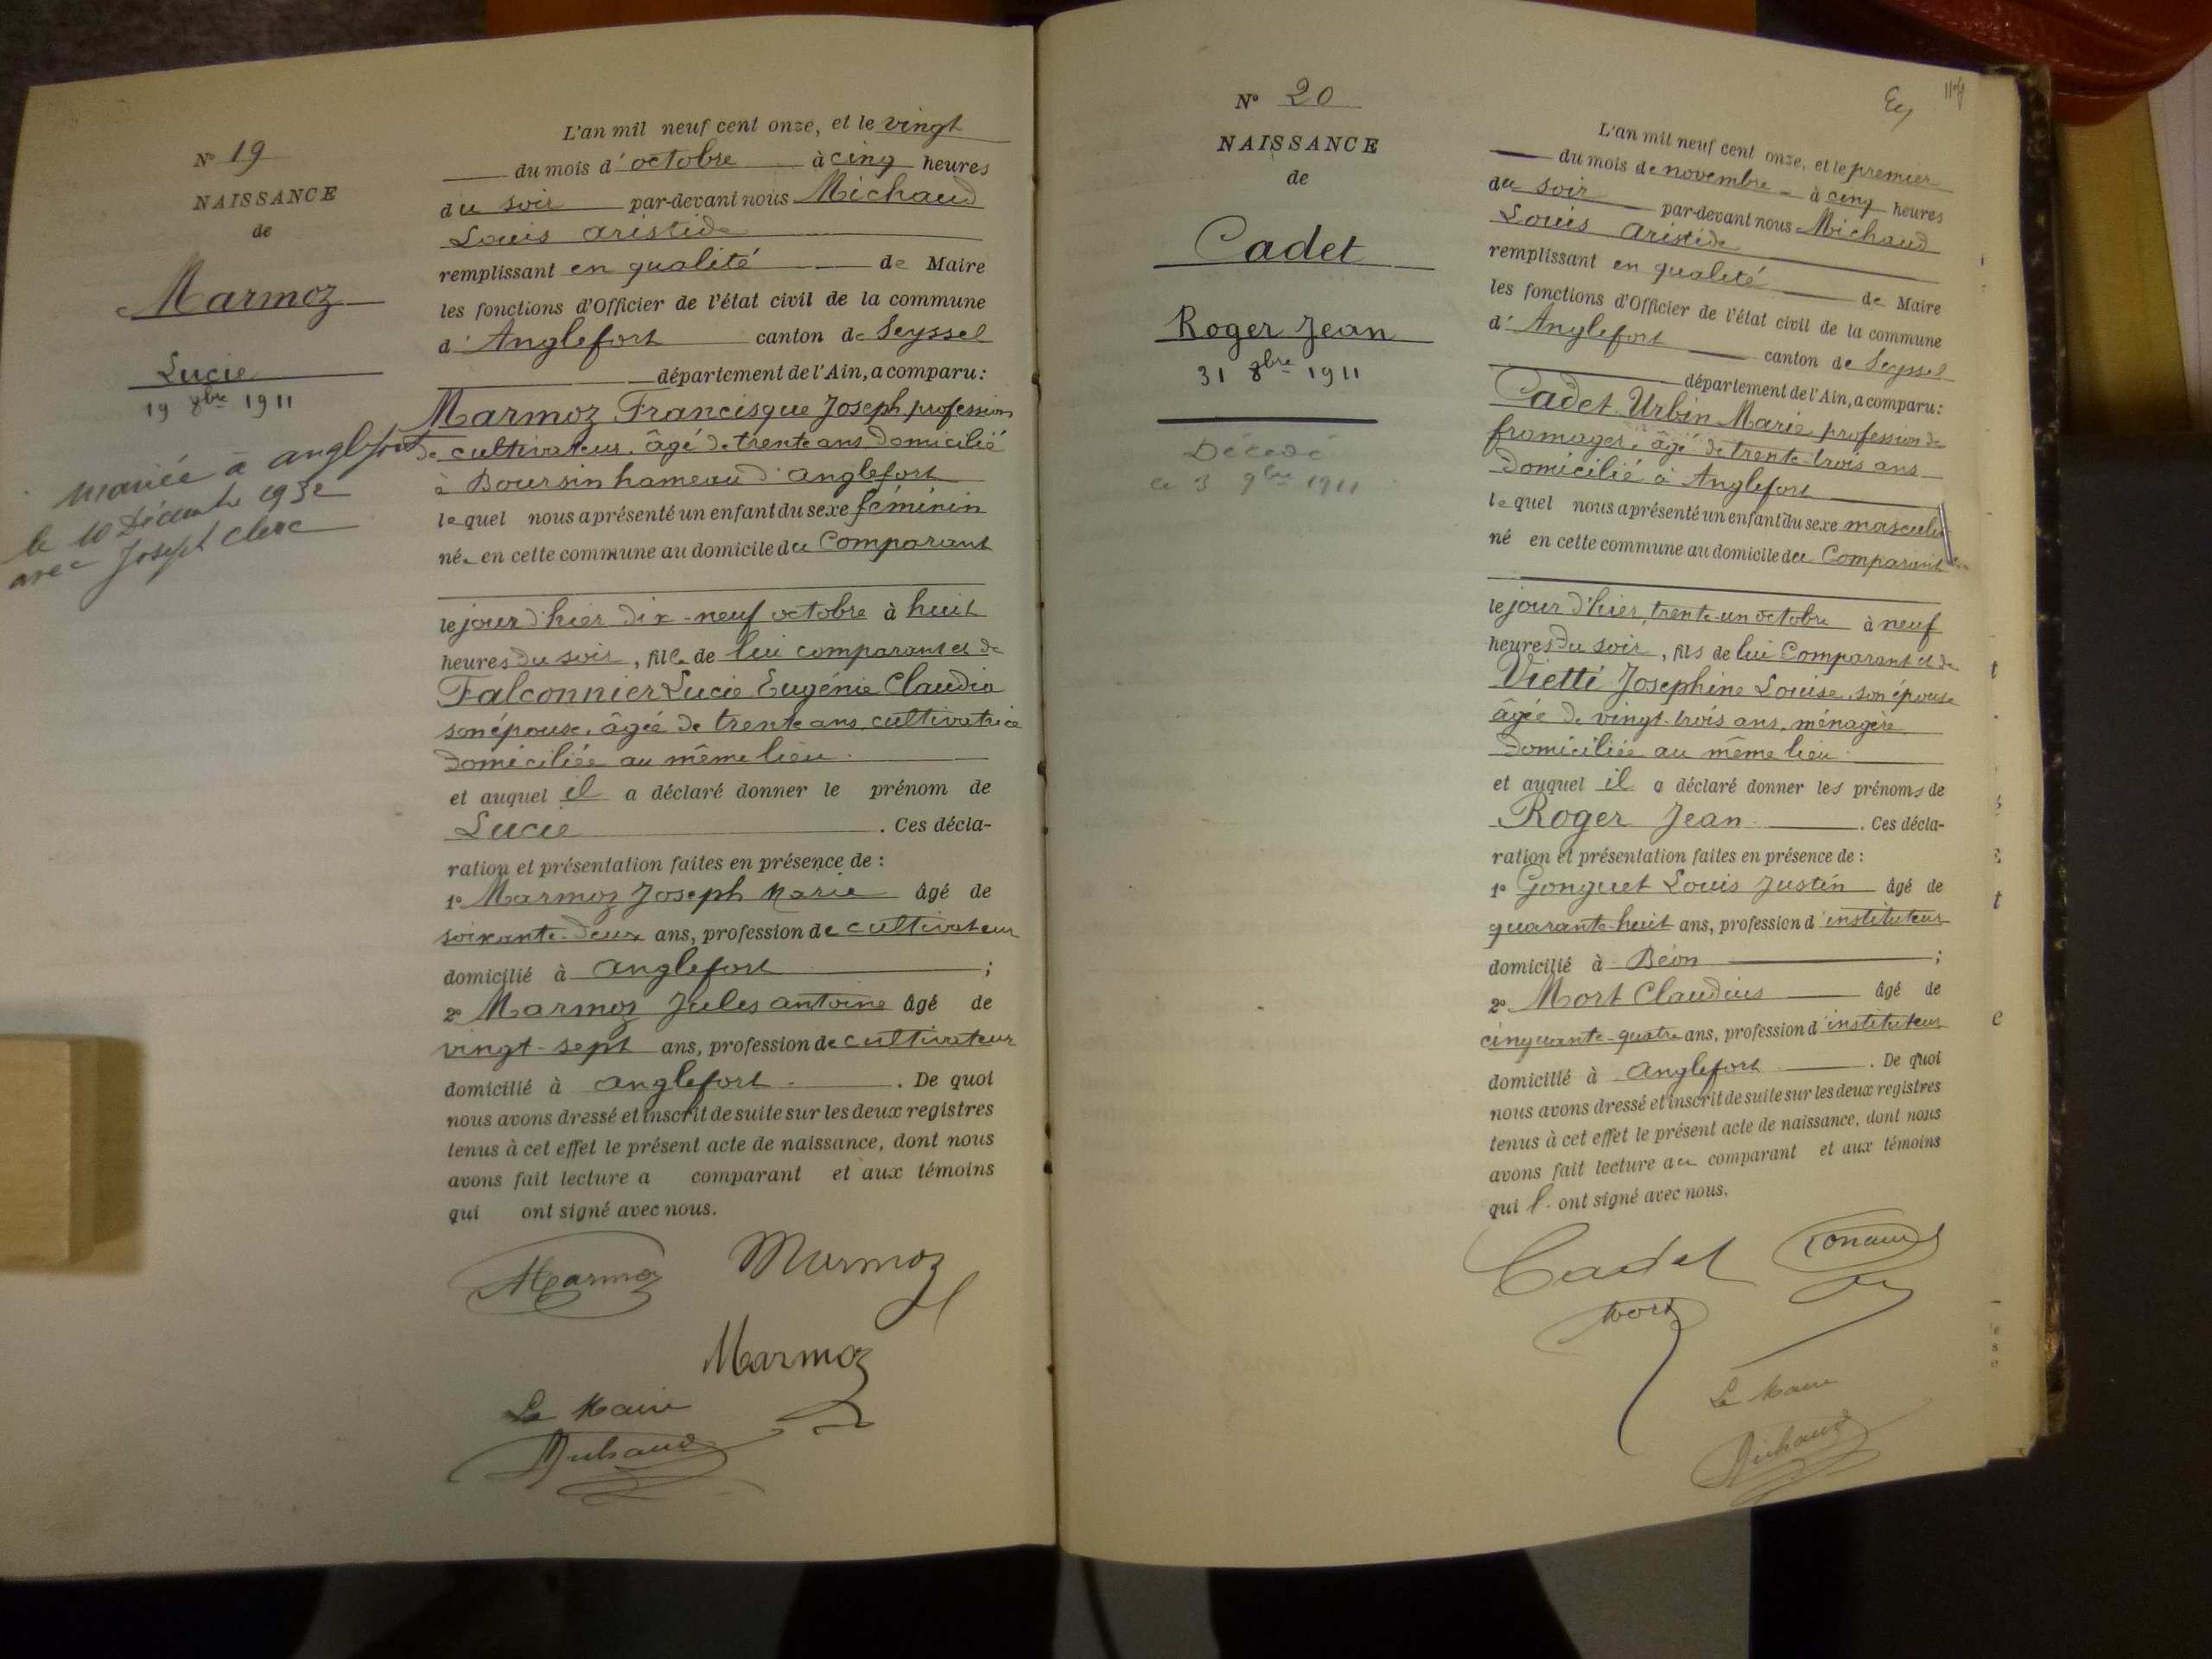 N° 19
NAISSANCE
de
Marmoz
Lucie
19 8bre 1911
mariée à anglefort
le 10 Décembre 1932
avec Joseph Clerc
L'an mil neuf cent onze, et le vingt
du mois d'octobre à cinq heures
du soir par-devant nous Michaud
Louis Aristide
remplissant en qualité de Maire
les fonctions d'Officier de l'état civil de la commune
d'Anglefort canton de Seyssel
département de l'Ain, a comparu:
Marmoz Francisque Joseph profession
de cultivateur, âgé de trente ans domicilié
à Boursin hameau d'anglefort
lequel nous a présenté un enfant du sexe féminin
née en cette commune au domicile du Comparant
le jour d'hier dix-neuf octobre à huit
heures du soir, fille de lui comparant et de
Falconnier Lucie Eugénie Claudia
son épouse, âgée de trente ans cultivatrice
domiciliée au même lieu.
et auquel il a déclaré donner le prénom de
Lucie. Ces décla-
ration et présentation faites en présence de :
1° Marmoz Joseph Marie âgé de
soixante-deux ans, profession de cultivateur
domicilié à anglefort ;
2° Marmoz Jules antoine âgé de
vingt-sept ans, profession de cultivateur
domicilié à anglefort. De quoi
nous avons dressé et inscrit de suite sur les deux registres
tenus à cet effet le présent acte de naissance, dont nous
avons fait lecture a comparant et aux témoins
qui ont signé avec nous.
Marmoz Marmoz
Marmoz
Le Maire
Michaud
N° 20
NAISSANCE
de
Cadet
Roger Jean
31 8bre 1911
Décédé
le 3 9bre 1911
L'an mil neuf cent onze, et le premier
du mois de novembre à cinq heures
du soir par-devant nous Michaud
Louis Aristide
remplissant en qualité de Maire
les fonctions d'Officier de l'état civil de la commune
d'Anglefort canton de Seyssel
département de l'Ain, a comparu:
Cadet Urbin Marie profession de
fromager, âgé de trente-trois ans
domicilié à Anglefort
lequel nous a présenté un enfant du sexe masculin
né en cette commune au domicile du Comparant
le jour d'hier, trente-un octobre à neuf
heures du soir, fils de lui Comparant et de
Vietti Josephine Louise, son épouse
âgée de vingt-trois ans, ménagère
domiciliée au même lieu.
et auquel il a déclaré donner les prénoms de
Roger Jean. Ces décla-
ration et présentation faites en présence de :
1° Gonguet Louis Justin âgé de
quarante-huit ans, profession d'instituteur
domicilié à Béon ;
2° Mort Claudius âgé de
cinquante-quatre ans, profession d'instituteur
domicilié à Anglefort. De quoi
nous avons dressé et inscrit de suite sur les deux registres
tenus à cet effet le présent acte de naissance, dont nous
avons fait lecture au comparant et aux témoins
qui l'ont signé avec nous.
Cadet
Mort
Le Maire
Michaud